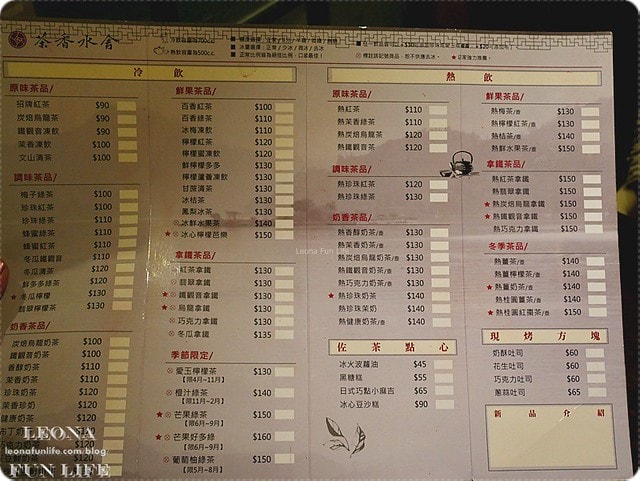 茶香水舍
冷飲
原味茶品/
招牌紅茶 $90
炭焙烏龍茶 $90
鐵觀音凍飲 $90
茉香凍飲 $100
文山清茶 $100
調味茶品/
梅子綠茶 $100
珍珠紅茶 $100
珍珠綠茶 $110
蜂蜜綠茶 $110
蜂蜜紅茶 $110
冬瓜鐵觀音 $110
冬瓜清茶 $120
鮮多多綠茶 $120
★冬瓜檸檬 $130
翡翠檸檬茶 $130
奶香茶品/
炭焙烏龍奶茶 $100
鐵觀音奶茶 $100
香醇奶茶 $110
茉香奶茶 $110
珍珠奶茶 $120
茉香珍奶 $120
健康奶茶 $120
鮮果茶品/
百香紅茶 $100
百香綠茶 $110
冰梅凍飲 $110
檸檬紅茶 $120
檸檬蜜凍飲 $120
鮮檸檬多多 $120
檸檬蘆薈凍飲 $130
甘蔗清茶 $130
冰桔茶 $130
鳳梨冰茶 $130
冰鮮水果茶 $140
★冰心檸檬芭樂 $150
拿鐵茶品/
紅茶拿鐵 $130
翡翠拿鐵 $130
★鐵觀音拿鐵 $130
★烏龍拿鐵 $130
巧克力拿鐵 $130
冬瓜拿鐵 $135
季節限定/
愛玉檸檬茶 $130
【限4月~11月】
橙汁綠茶 $140
【限11月~2月】
★芒果綠茶 $150
【限6月~9月】
★芒果好多綠 $160
【限6月~9月】
葡萄柚綠茶 $150
【限5月~8月】
熱飲
原味茶品/
熱紅茶 $110
熱茉香綠茶 $110
熱炭焙烏龍茶 $120
熱鐵觀音茶 $120
調味茶品/
熱珍珠紅茶 $120
熱珍珠綠茶 $130
奶香茶品/
熱香醇奶茶/壺 $130
熱茉香奶茶/壺 $130
熱炭焙烏龍奶茶/壺 $130
熱鐵觀音奶茶/壺 $130
熱巧克力奶茶/壺 $130
★熱珍珠奶茶 $140
熱珍珠茉奶 $140
熱健康奶茶/壺 $130
佐茶點心
冰火波蘿油 $45
黑糖糕 $55
日式巧點小麻吉 $65
冰心豆沙糕 $90
鮮果茶品/
熱梅茶/壺 $130
熱檸檬紅茶/壺 $130
熱桔茶/壺 $140
熱鮮水果茶/壺 $150
拿鐵茶品/
熱紅茶拿鐵 $150
熱翡翠拿鐵 $150
★熱炭焙烏龍拿鐵 $150
★熱鐵觀音拿鐵 $150
熱巧克力拿鐵 $150
冬季茶品/
熱薑茶/壺 $140
熱薑檸檬茶/壺 $140
★熱薑奶茶/壺 $140
熱桂圓薑茶/壺 $140
★熱桂圓紅棗茶/壺 $140
現烤方塊
奶酥吐司 $60
花生吐司 $60
巧克力吐司 $60
蔥蒜吐司 $60
新品介紹
Leona Fun
LEONA
leonafunlife.com/blog
FUN LIFE